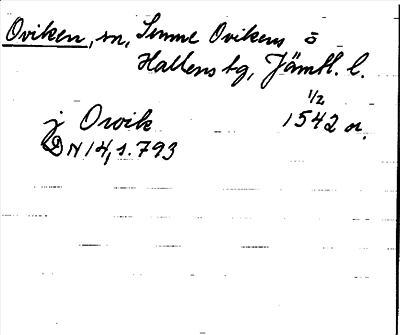 Oviken, sn, Sunne Ovikens o
Hallens tg, Jämtl. l.
1/2
j Owik 1542 or.
DN 14, s. 793